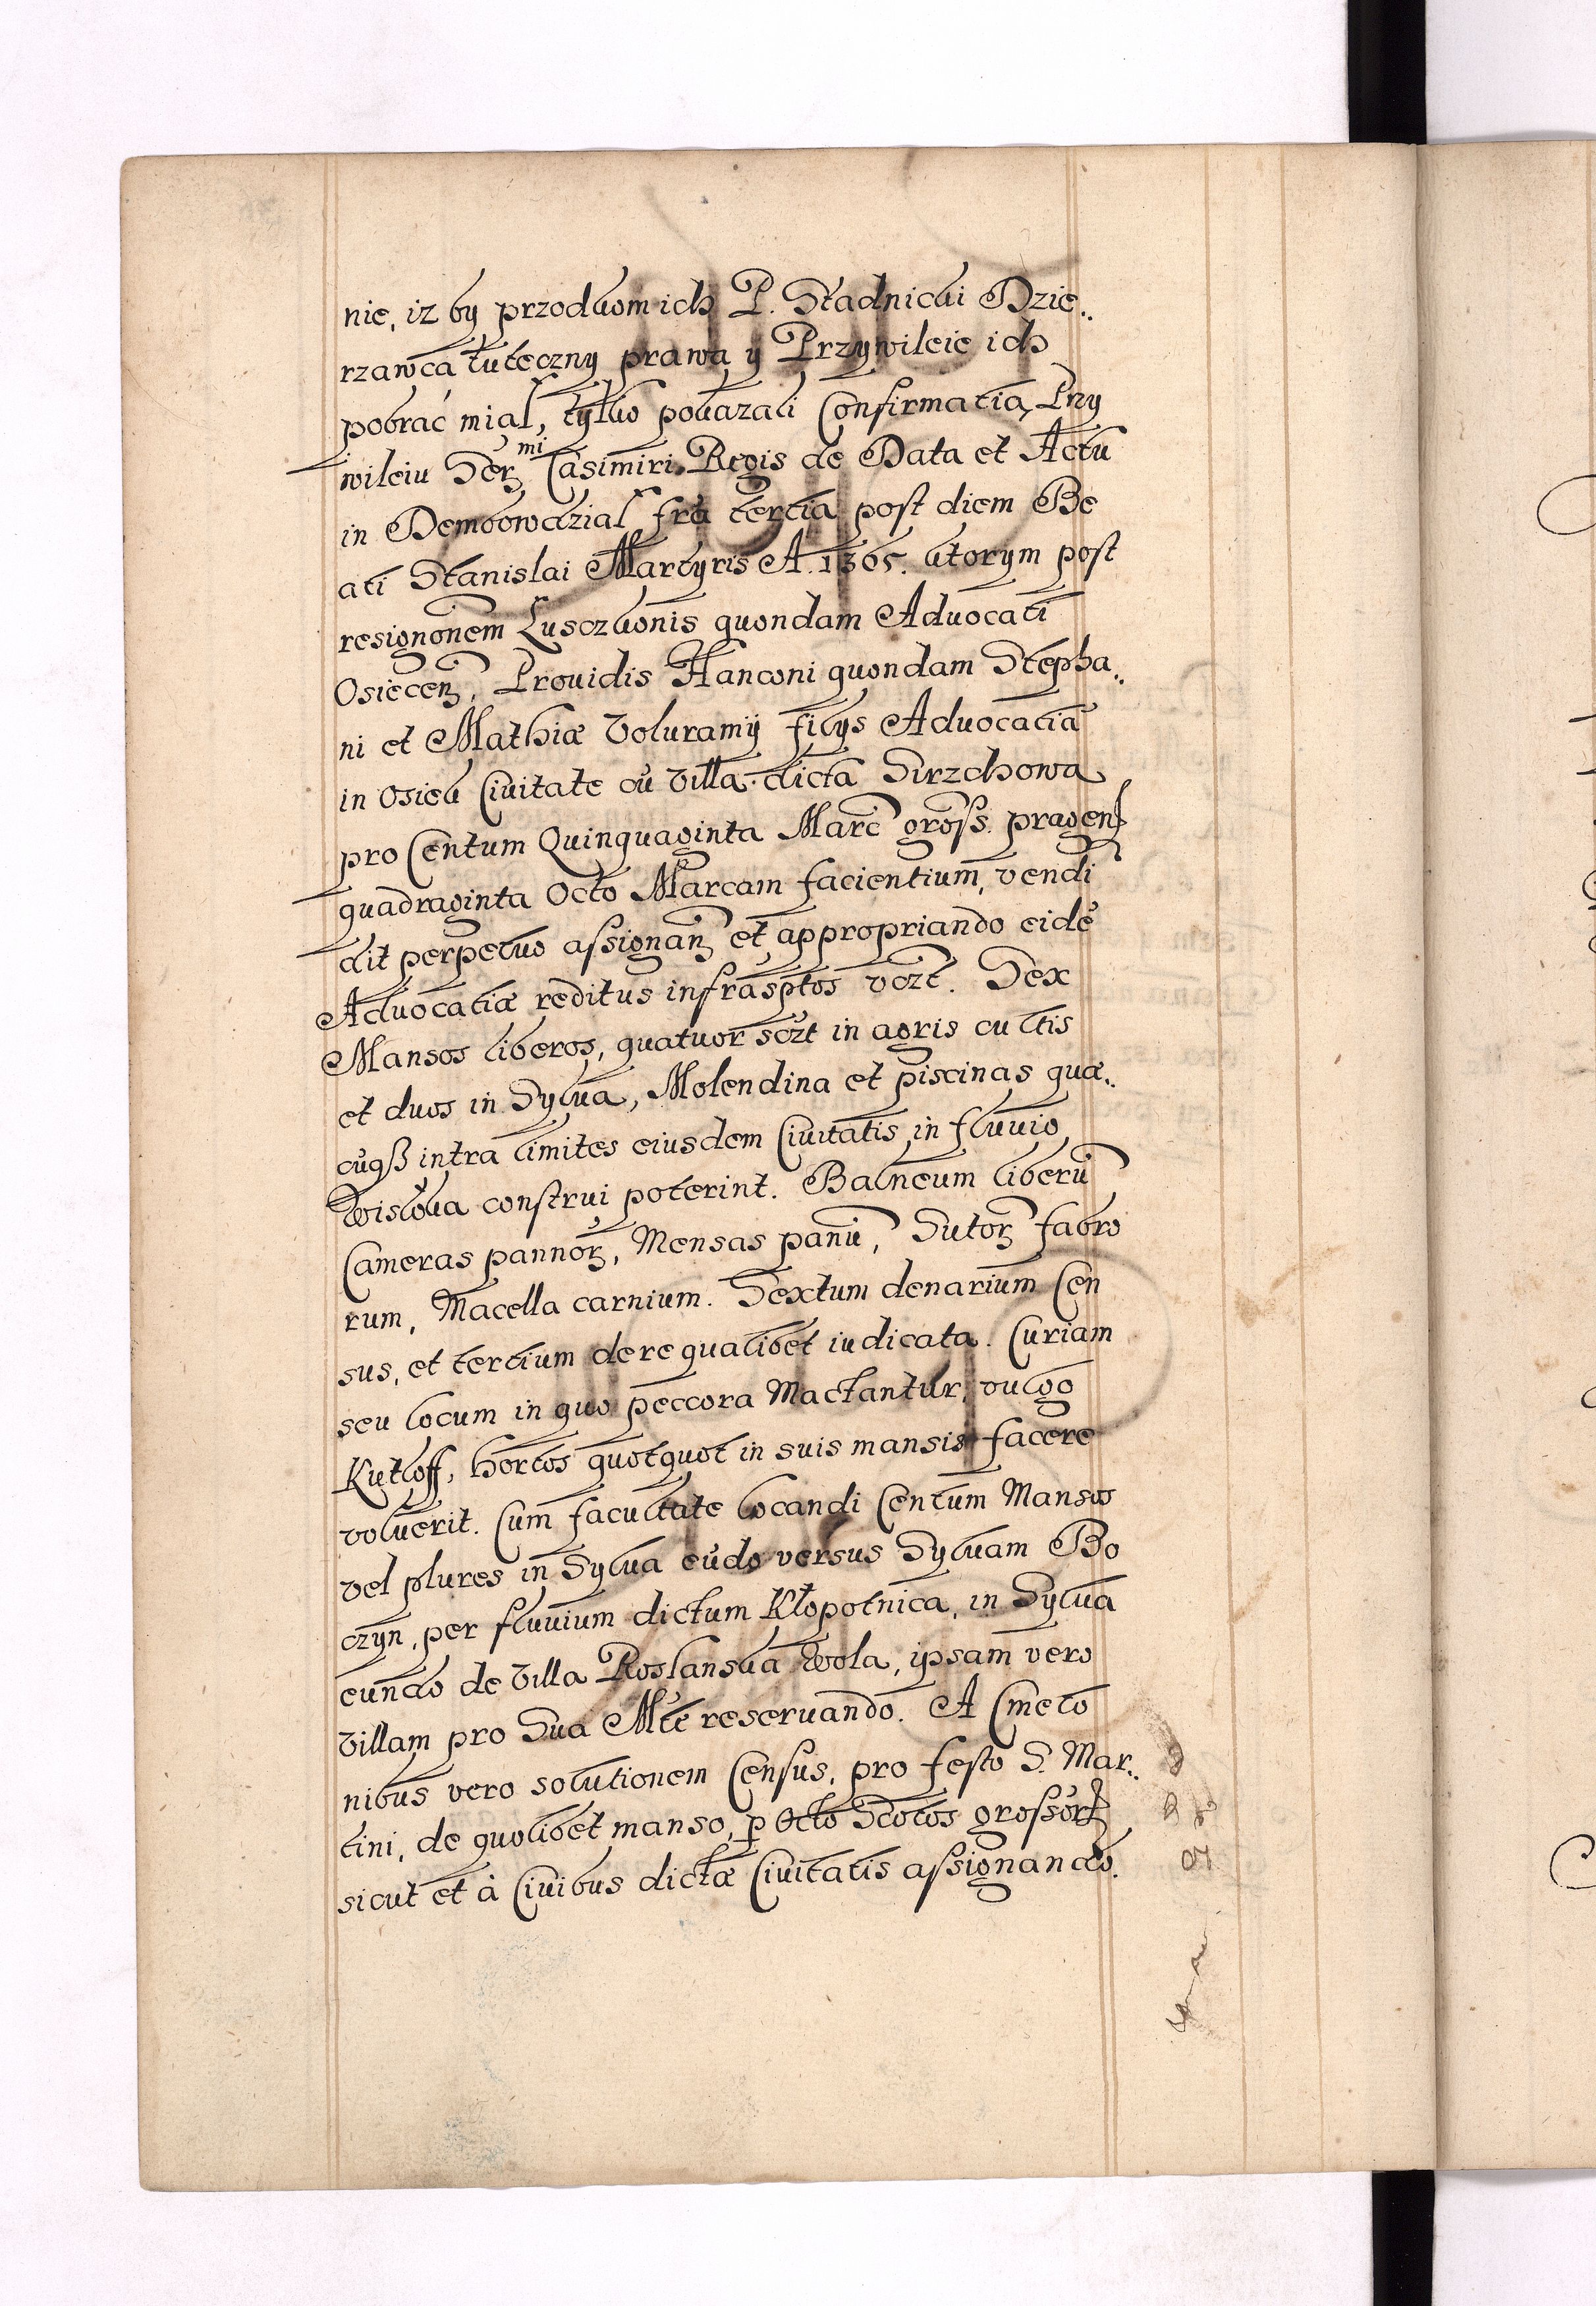 nie, iz by przodkom ich P. Stadnicki Dzie..
rzawca tuteczny prawa y Przywileie ich
pobrać miał, tylko pokazali Confirmatią Przy
wileiu Serz mi Casimiri Regis de Data et Actu
in Dembowdział fra tertia post diem Be
ati Stanislai Martyris A. 1365. ktorym post
resignonem Lusczkonis quondam Advocati
Osiecen, Prouidis Hanconi quondam Stepha..
ni et Mathiæ Voluramÿ filys Advocatia
in Osiek Ciuitate cũ Villa dicta Sirzchowa
pro Centum Quinquaginta Marc gross. pragen
quadraginta Octo Marcam facientium, vendi
dit perpetuo assignan et appropriando eidẽ
Advocatiæ reditus infrasptos vczt. Sex
Mansos liberos, quatuor sczt in agris cultis
et duos in Sylva, Molendina et piscinas quæ..
cũq3 intra limites eiusdem Ciuitatis in fluuio
Wisłoka construi poterint. Balneum liberũ
Cameras pannor, Mensas panũ, Sutor fabro
rum, Macella carnium. Sextum denarium Cen
sus, et tertium de re qualibet iudicata. Curiam
seu locum in quo peccora Mactantur, vulgo
Kutloff, hortos quotquot in suis mansis facere
voluerit. Cum facultate locandi Centum Mansos
vel plures in Sylva eũdo versus Sylvam Bo
czyn, per fluvium dictum Kłopotnica, in Sylva
eundo de Villa Roslanska Wola, ipsam vero
Villam pro Sua Mte reservando. A Cmeto
nibus vero solutionem Census, pro festo S. Mar..
tini, de quolibet manso, p Octo Scotos grossor
sicut et à Ciuibus dictæ Ciuitatis assignando.